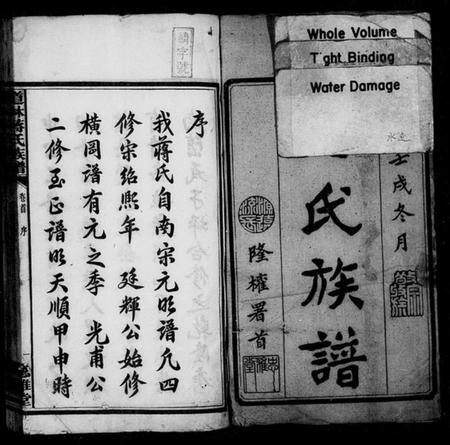 Whole Volume
Tight Binding
Water Damage
水送
壬戌冬月
氏族譜
隆權署首
序
我蔣氏自南宋元明譜凡四
修宋紹熙年 廷輝公始修
橫岡譜有元之季 光甫公
二修至正譜明天順甲申時
道林蔣氏族譜
卷首 序
一